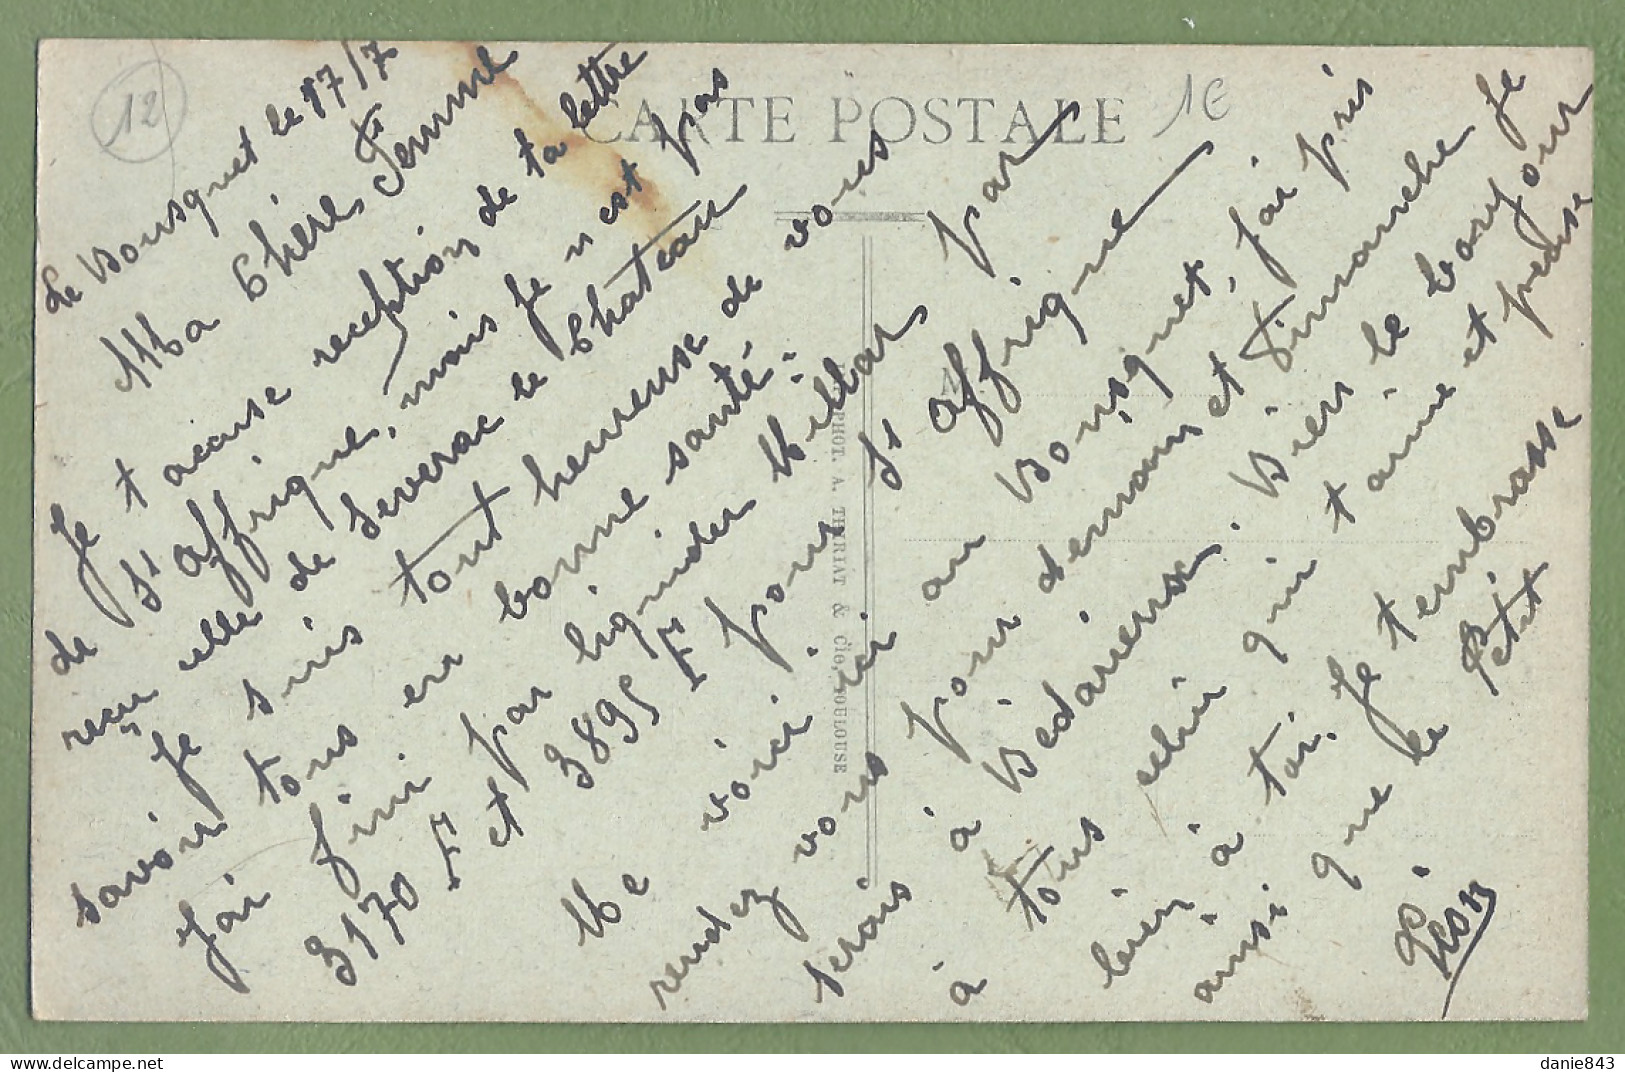 12
CARTE POSTALE
1€
Le Bousquet le 17/7
Ma Chère Femme
Je t acuse reception de ta lettre
de St affrique, mais je n est pas
reçu celle de Severac le Chateau
Je suis tout heureuse de vous
savoir tous en bonne santé.
J'ai fini par liquider Millau par
3170 F et 3895 F pour St Affrique
Me voici ici au Bousquet, j'ai pris
rendez vous pour demain et Dimanche je
serais à Bedarieux. Bien le bonjour
à tous celui qui t aime et pense
bien à toi. Je t'embrasse
ainsi que le Petit
Léon
PHOT. A. THIRIAT & Cie, TOULOUSE
danie843